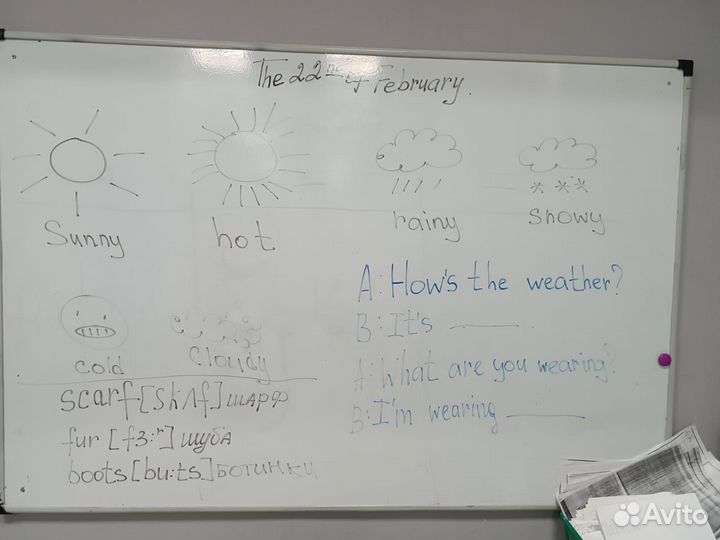 The 22nd of February.
Sunny hot rainy snowy
cold cloudy
scarf [skʌf] шарф
fur [fɜ:ʳ] шуба
boots [bu:ts] ботинки
A: How's the weather?
B: It's ______.
A: What are you wearing?
B: I'm wearing ______
Avito